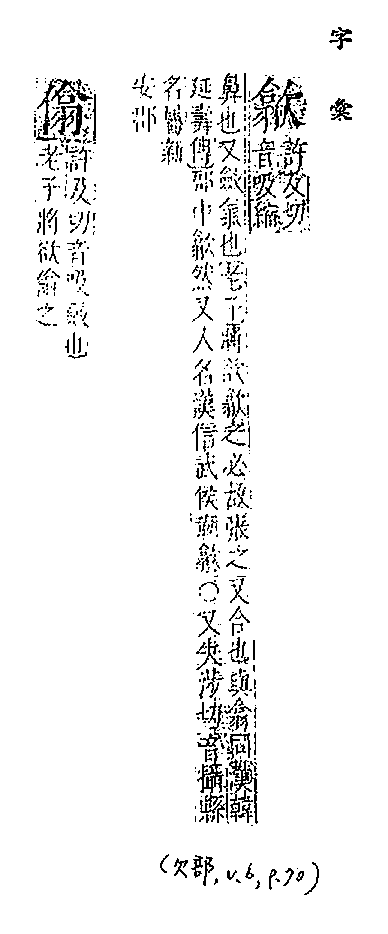 字彙
歙 許及切
音吸縮
鼻也又斂氣也老子將欲歙之必故張之又合也與翕同漢韓
延壽傳郡中歙然又人名漢信武侯靳歙○又失涉切音攝縣
名屬新
安郡
㒆 許及切音吸斂也
老子將欲㒆之
(欠部, v.6, p.70)